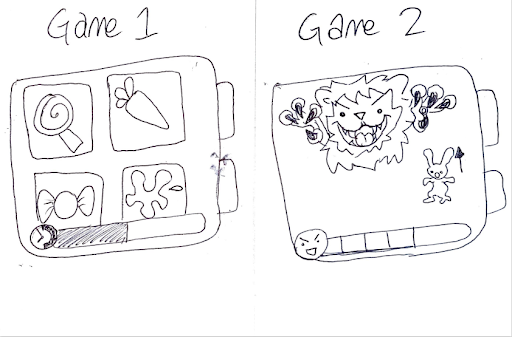 Game 1
Game 2